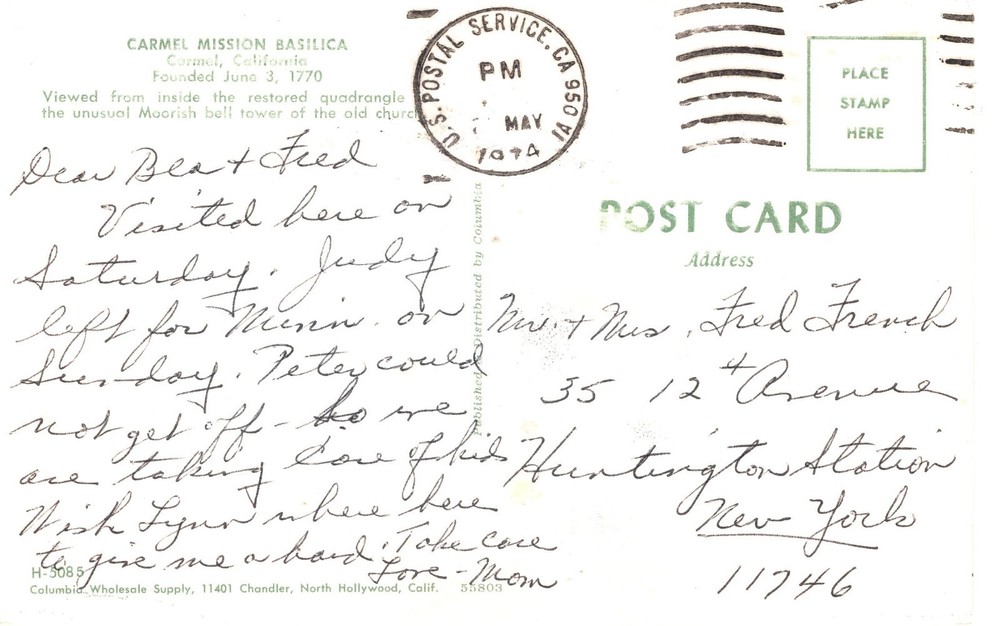 CARMEL MISSION BASILICA
Carmel, California
Founded June 3, 1770
Viewed from inside the restored quadrangle
the unusual Moorish bell tower of the old church
Dear Bea + Fred
Visited here on
Saturday. Judy
left for Minn. on
Sunday. Peter could
not get off - so we
are taking care of kids
Wish Lynn where here
to give me a hand. Take care
Love - Mom
H-5085
Columbia Wholesale Supply, 11401 Chandler, North Hollywood, Calif. 55803
Published Distributed by Columbia
U.S. POSTAL SERVICE, CA 950
PM
MAY
1974
PLACE
STAMP
HERE
POST CARD
Address
Mr. + Mrs. Fred French
35 12th Avenue
Huntington Station
New York
11746